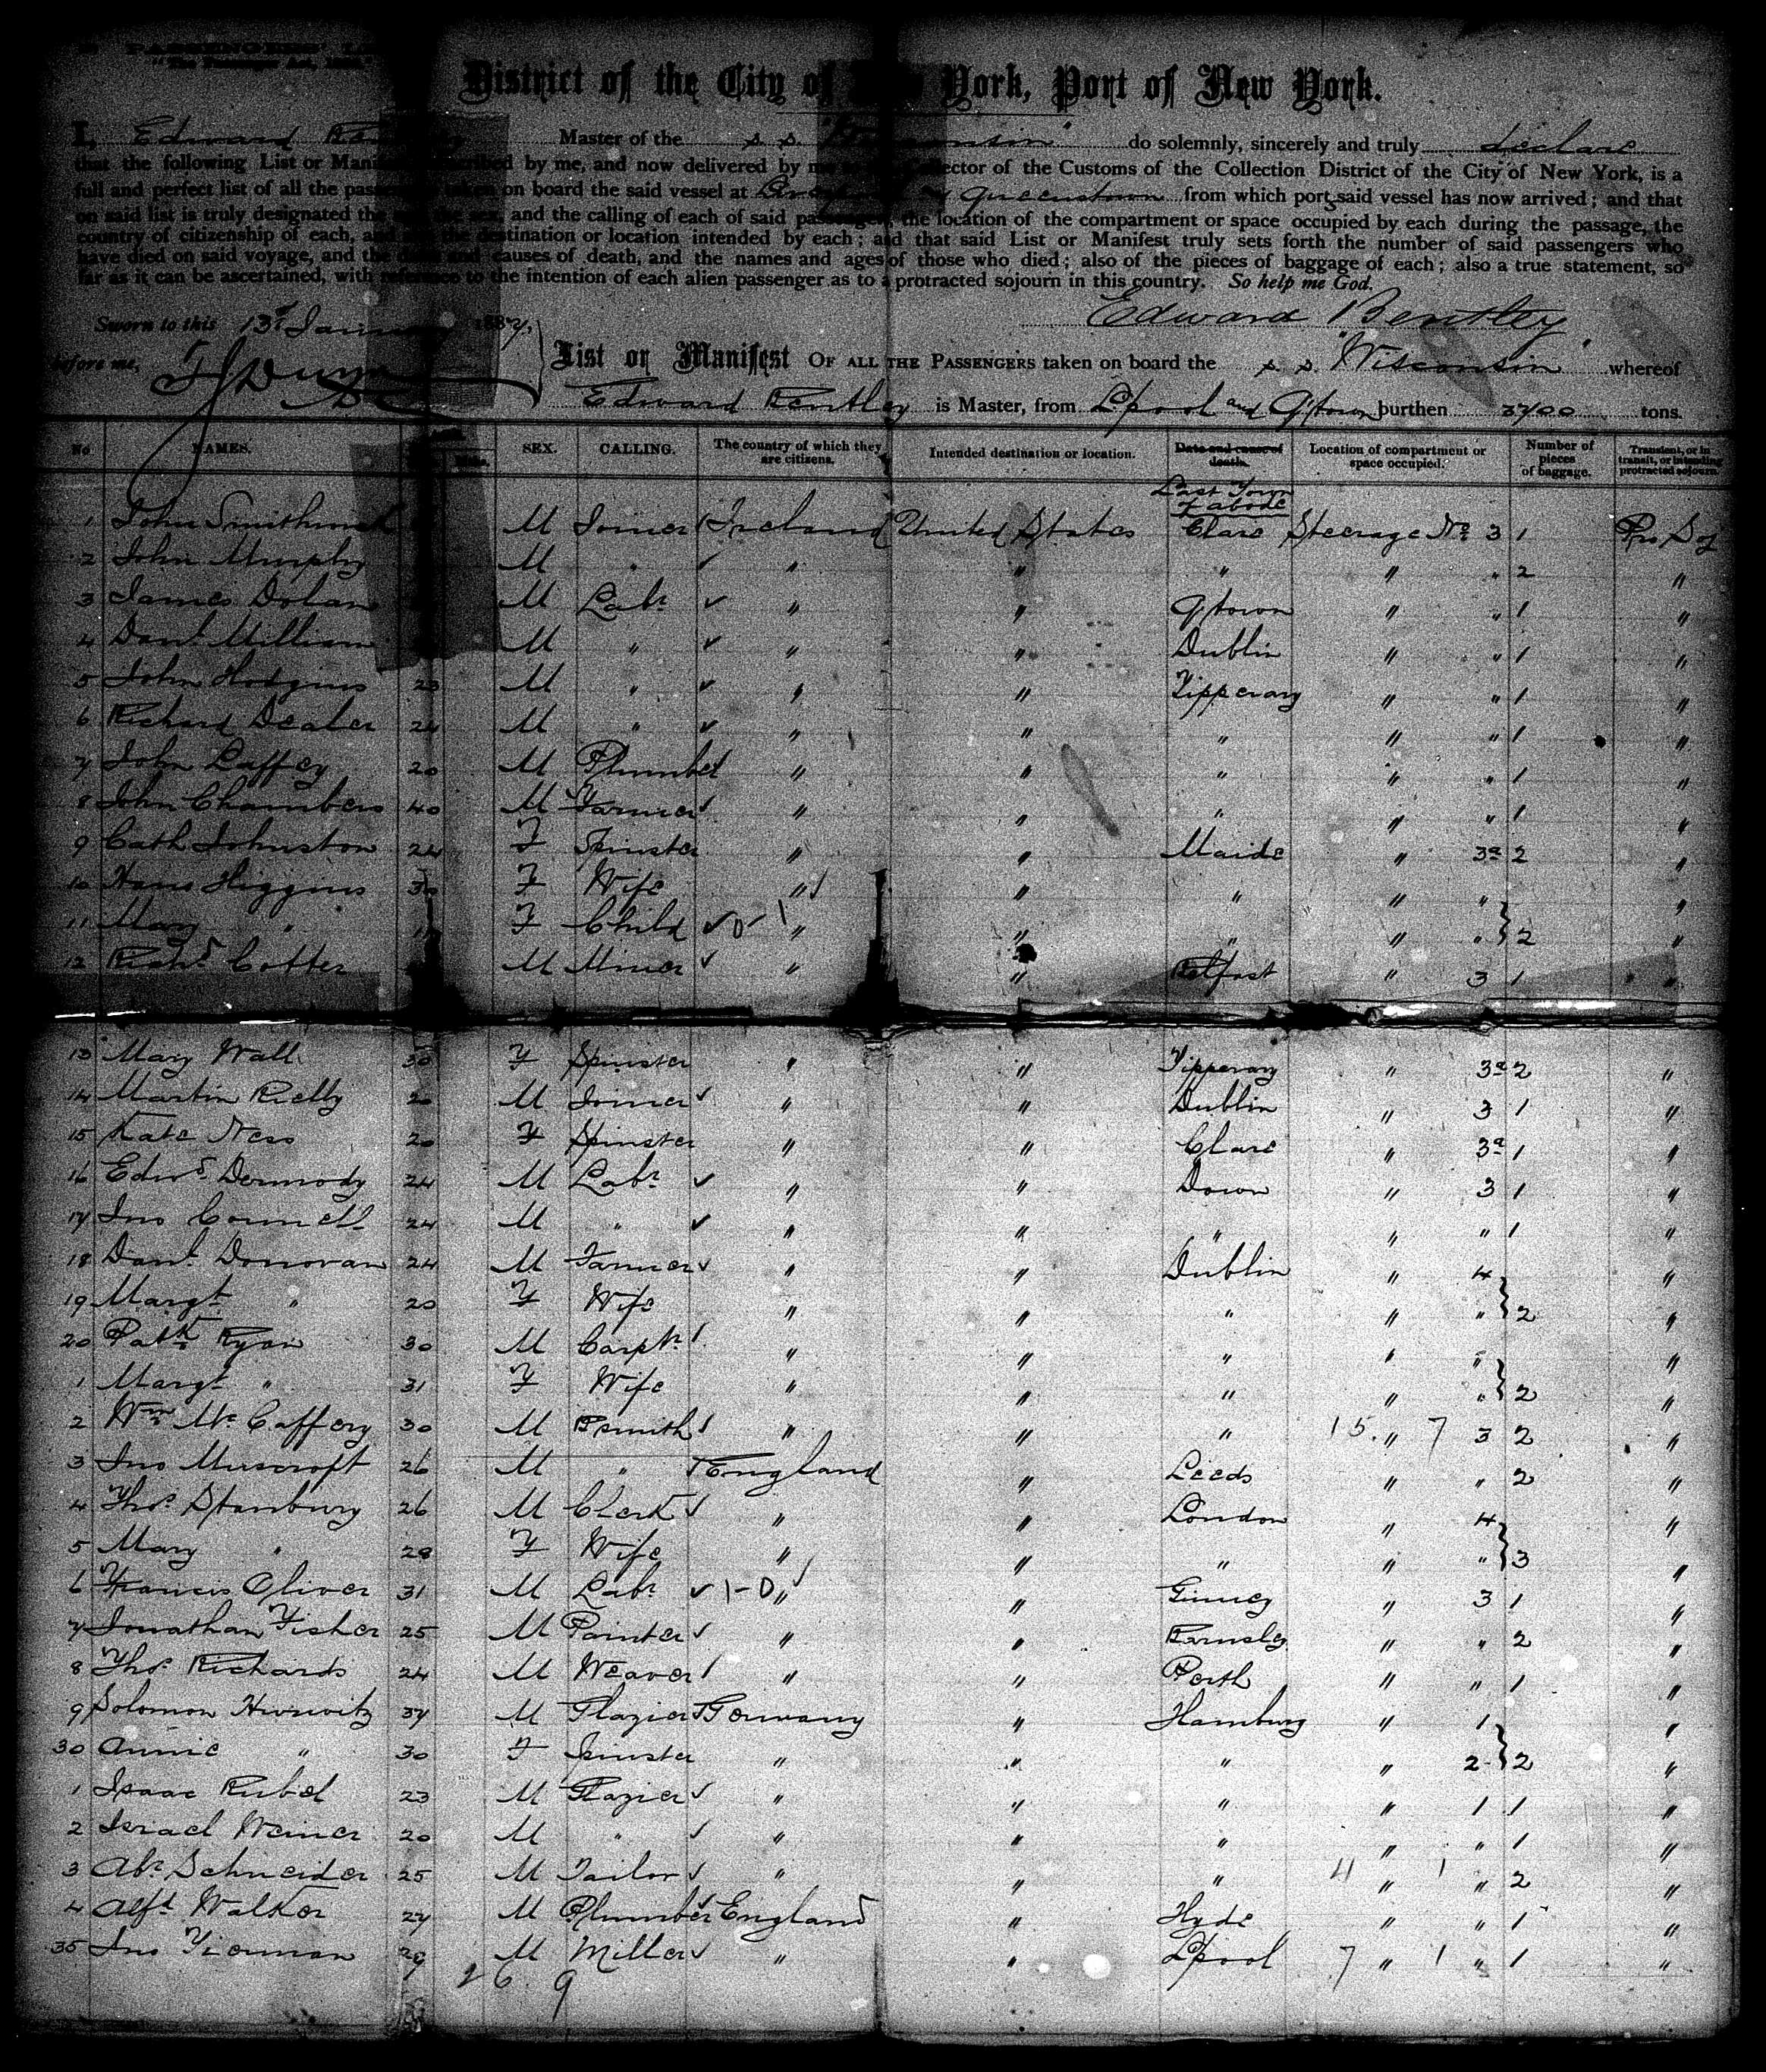 PASSENGERS'
"The Passenger Act,
District of the City of York, Port of New York.
I, Edward Master of the s.s. do solemnly, sincerely and truly declare
that the following List or by me, and now delivered by of the Customs of the Collection District of the City of New York, is a
full and perfect list of all the on board the said vessel at Queenstown from which port said vessel has now arrived; and that
on said list is truly designated the and the calling of each of said the location of the compartment or space occupied by each during the passage, the
country of citizenship of each, destination or location intended by each; and that said List or Manifest truly sets forth the number of said passengers who
have died on said voyage, and the causes of death, and the names and ages of those who died; also of the pieces of baggage of each; also a true statement, so
far as it can be ascertained, with reference to the intention of each alien passenger as to a protracted sojourn in this country. So help me God.
Edward Bentley
Sworn to this 13th
before me,
List or Manifest OF ALL THE PASSENGERS taken on board the s.s. "Wisconsin" whereof
Edward Bentley is Master, from L'pool and Q'town burthen 3700 tons.
No NAMES. SEX. CALLING. The country of which they are citizens. Intended destination or location. Date and cause of death. Location of compartment or space occupied. Number of pieces of baggage. Transient, or in transit, or intending protracted sojourn.
Last Town
of abode
1 John M Joiner Ireland United States Clare Steerage No 3 1 Pro Soj
2 John Murphy M " " " " " " 2 "
3 James Dolan M Labr " " Q'town " " 1 "
4 Danl William M " " " Dublin " " 1 "
5 John Hodgins 23 M " " " Tipperary " " 1 "
6 Richard Dealer 24 M " " " " " " 1 "
7 John Laffey 20 M Plumber " " " " " 1 "
8 John Chambers 40 M Farmer " " " " " 1 "
9 Cath Johnston 24 F Spinster " " " 3a 2 "
10 Higgins 30 F Wife " " " " " "
11 Mary " F Child " " " " " 2 "
12 Richd Cotter M Miner " " Belfast " 3 1 "
13 Mary Wall 30 F Spinster " " Tipperary " 3a 2 "
14 Martin Rielly M Joiner " " Dublin " 3 1 "
15 Kate Ness 20 F Spinster " " Clare " 3a 1 "
16 Edwd Dermody 24 M Labr " " Down " 3 1 "
17 Jno Connell 24 M " " " " " " 1 "
18 Danl Donovan 24 M Farmer " " Dublin " 4 "
19 Margt " 20 F Wife " " " " " 2 "
20 Patk Ryan 30 M Carptr " " " " " "
1 Margt " 31 F Wife " " " " " 2 "
2 Wm McCaffery 30 M Bsmith " " " 15. " 7 3 2 "
3 Jno Muscroft 26 M " England " Leeds " " 2 "
4 Thos Stanbury 26 M Clerk " " London " 4 "
5 Mary " 28 F Wife " " " " " 3 "
6 Francis Oliver 31 M Labr 1-0 " " " 3 1 "
7 Jonathan Fisher 25 M Painter " " Barnsley " " 2 "
8 Thos Richards 24 M Weaver " " Perth " " 1 "
9 Solomon Hurwitz 37 M Glazier Germany " Hamburg " 1 "
30 Annie " 30 F Spinster " " " " 2 2 "
1 Isaac Rubel 23 M Glazier " " " " 1 1 "
2 Israel Weiner 20 M " " " " " " 1 "
3 Abr Schneider 25 M Tailor " " " 4 " 1 " 2 "
4 Alfd Walker 27 M Plumber England " Hyde " " 1 "
35 Jno 29 M Miller " " L'pool 7 " 1 " 1 "
26. 9